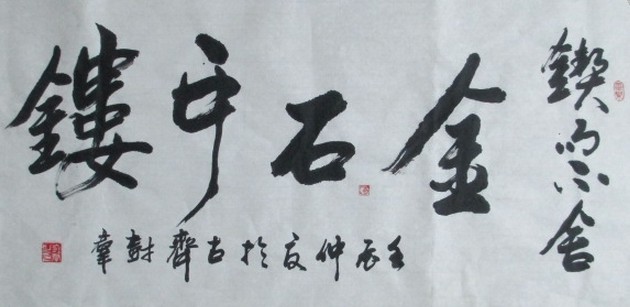 鍥而不舍
金石可鏤
壬辰仲夏於古齊